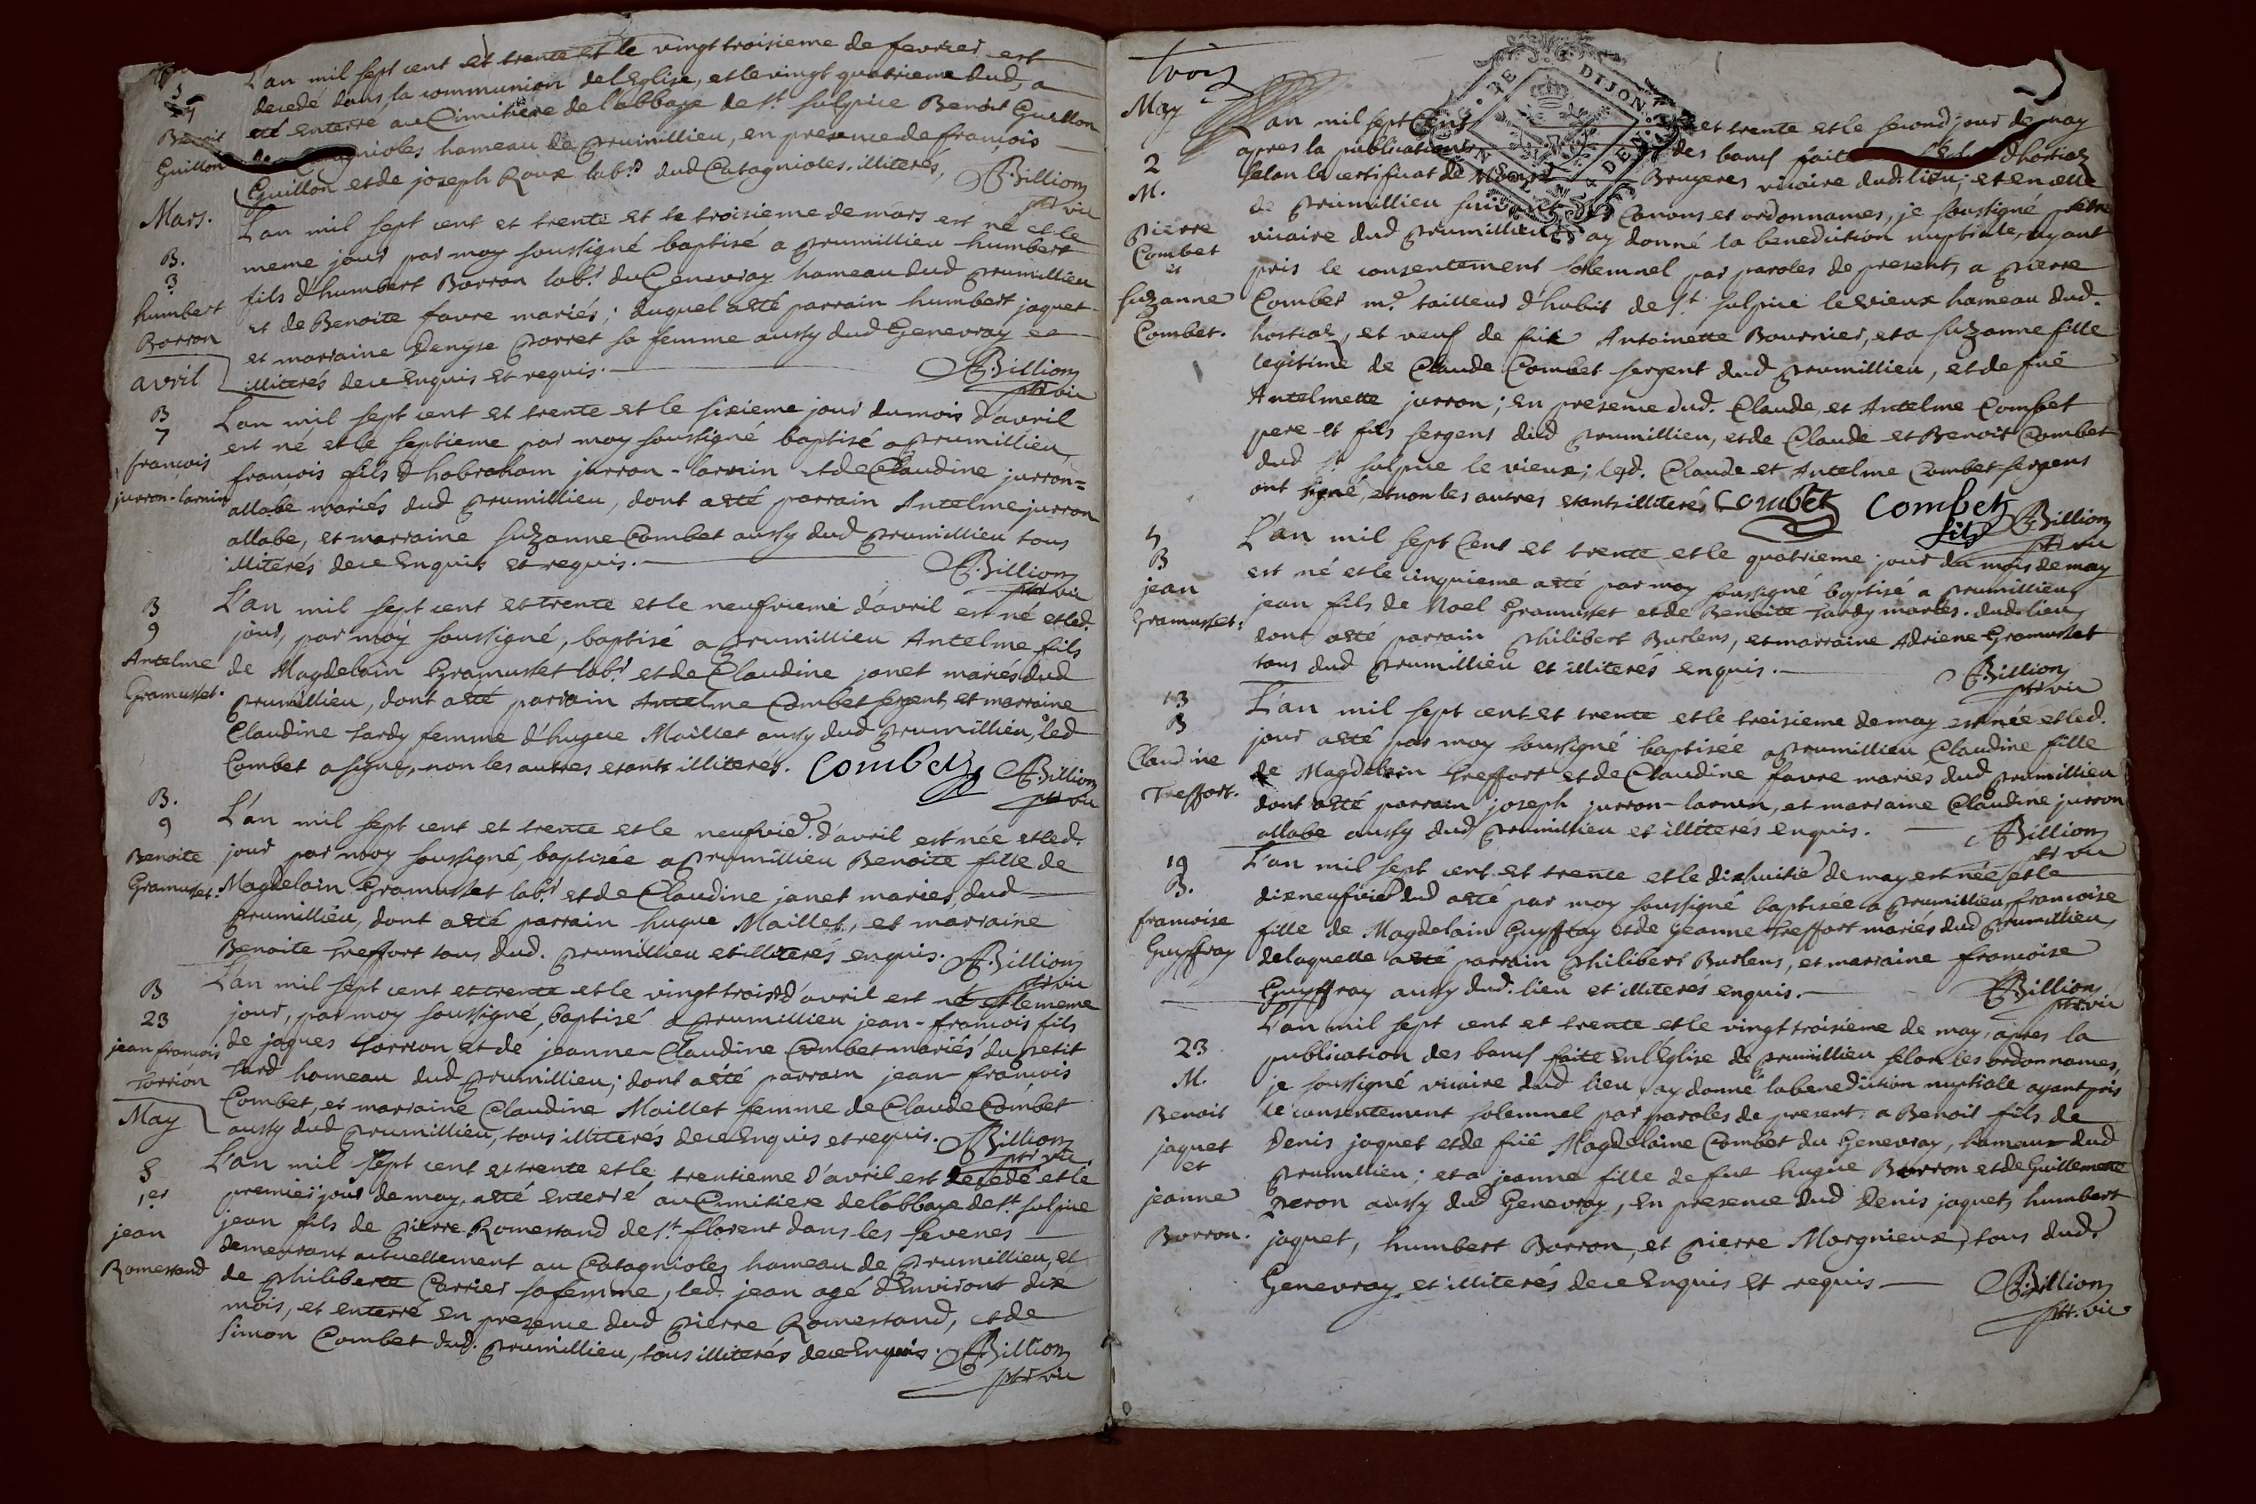 S
Benoit
Guillon
L'an mil sept cent et trente et le vingt troisieme de fevrier est
decedé dans la communion de l'Eglise, et le vingt quatrieme dud, a
eté enterré au Cimitiere de l'abbaye de St. sulpice Benoit Guillon
hameau de prumillieu, en presence de françois
Guillon et de joseph Roux labr. dud Catagnioles. illiterés,
Billion
ptr vic
Mars.
B.
3
humbert
Borron
L'an mil sept cent et trente et le troisieme de mars est né et le
meme jour par moy soussigné baptisé a prumillieu humbert
fils d'humbert Borron labr. du Genevray hameau dud prumillieu
et de Benoite favre mariés; duquel a eté parrain humbert jaquet
et marraine Denyse Corret sa femme aussy dud Genevray et
illiterés de ce Enquis et requis.
Billion
ptr vic
avril
B
7
françois
jurron-larnin
L'an mil sept cent et trente et le sixieme jour du mois d'avril
est né et le septieme par moy soussigné baptisé a prumillieu,
françois fils d'habraham jurron-larnin et de Claudine jurron=
allabe mariés dud prumillieu, dont a eté parrain Antelme jurron
allabe, et marraine suzanne Combet aussy dud prumillieu tous
illiterés de ce Enquis et requis.
Billion
ptr vic
B
9
Antelme
Gramusset.
L'an mil sept cent et trente et le neufvieme d'avril est né et led.
jour, par moy soussigné, baptisé a prumillieu Antelme fils
de Magdelain Gramusset labr. et de Claudine janet mariés dud
prumillieu, dont a eté parrain Antelme Combet sergent, et marraine
Claudine tardy femme d'hugue Maillet aussy dud prumillieu, led
Combet a signé, non les autres etants illiterés.
Combet
Billion
ptr vic
B.
9
Benoite
Gramusset.
L'an mil sept cent et trente et le neufvie. d'avril est née et led.
jour par moy soussigné, baptisée a prumillieu Benoite fille de
Magdelain Gramusset labr. et de Claudine janet mariés, dud
prumillieu, dont a eté parrain hugue Maillet, et marraine
Benoite treffort tous dud. prumillieu et illiterés enquis.
Billion
ptr vic
B
23
jean françois
torrion
L'an mil sept cent et trente et le vingt trois d'avril est né et le meme
jour, par moy soussigné, baptisé a prumillieu jean-françois fils
de jaques torrion et de jeanne-Claudine Combet mariés du petit
hameau dud prumillieu; dont a eté parrain jean-françois
Combet, et marraine Claudine Maillet femme de Claude Combet
aussy dud prumillieu, tous illiterés de ce Enquis et requis.
Billion
ptr vic
May
S
1er
jean
Romestand
L'an mil sept cent et trente et le trentieme d'avril est decedé et le
premier jour de may, a eté enterré au Cimitiere de l'abbaye de St. sulpice
jean fils de pierre Romestand de St. florent dans les sevenes
demeurant actuellement au Catagnioles hameau de prumillieu, et
de philiberte Carrier sa femme, led. jean agé d'Environt dix
mois, et enterré en presence dud pierre Romestand, et de
simon Combet dud. prumillieu, tous illiterés de ce Enquis.
Billion
ptr vic
trois
DIJON
May
2
M.
pierre
Combet
et
suzanne
Combet.
L'an mil sept Cent et trente et le second jour de may
apres la publication des bancs faite d'hostiaz
selon le certificat de Bruyeres vicaire dud. lieu; et en celle
de prumillieu suivant les Canons et ordonnances, je soussigné ptre
vicaire dud prumillieu ay donné la benediction nuptiale, ayant
pris le consentement solemnel par paroles de present, a pierre
Combet me. tailleur d'habit de St. sulpice le vieux hameau dud.
hostiaz, et veuf de fuë Antoinette Bournier, et a suzanne fille
legitime de Claude Combet sergent dud prumillieu, et de fuë
Antelmette jurron; en presence dud. Claude et Antelme Combet
pere et fils sergens dud prumillieu, et de Claude et Benoit Combet
dud St. sulpice le vieux; lsqd. Claude et Antelme Combet sergens
ont signé, et non les autres etants illiterés
Combet
Combet
fils
Billion
ptr vic
5
B
jean
Gramusset.
L'an mil sept Cent et trente et le quatrieme jour du mois de may
est né et le cinquieme a eté par moy soussigné baptisé a prumillieu
jean fils de Noel Gramusset et de Benoite tardy mariés dud. lieu,
dont a eté parrain philibert Burlens, et marraine Adriene Gramusset
tous dud prumillieu et illiterés enquis.
Billion
ptr vic
13
B
Claudine
Treffort.
L'an mil sept cent et trente et le treisieme de may est née et led.
jour a eté par moy soussigné baptisée a prumillieu Claudine fille
de Magdelain treffort et de Claudine favre mariés dud prumillieu
dont a eté parrain joseph jurron-larnin, et marraine Claudine jurron
allabe aussy dud prumillieu et illiterés enquis.
Billion
ptr vic
19
B.
françoise
Guyffray
L'an mil sept cent et trente et le dixhuitie de may est née et le
dixneufvie dud a eté par moy soussigné baptisée a prumillieu françoise
fille de Magdelain Guyffray et de Jeanne treffort mariés dud prumillieu,
de laquelle a eté parrain philibert Burlens, et marraine françoise
Guyffray aussy dud. lieu et illiterés enquis.
Billion
ptr. vic
23
M.
Benoit
jaquet
et
jeanne
Borron.
L'an mil sept cent et trente et le vingt troisieme de may, apres la
publication des bancs faite en l'Eglise de prumillieu selon les ordonnances,
je soussigné vicaire dud lieu, ay donné la benediction nuptiale ayant pris
le consentement solemnel par paroles de present, a Benoit fils de
Denis jaquet et de fuë Magdelaine Combet du Genevray, hameau dud
prumillieu; et a jeanne fille de fut hugue Borron et de Guillemette
peron aussy dud Genevray, en presence dud Denis jaquet, humbert
jaquet, humbert Borron, et pierre Morgnieux, tous dud.
Genevray, et illiterés de ce Enquis et requis
Billion
ptr. vic